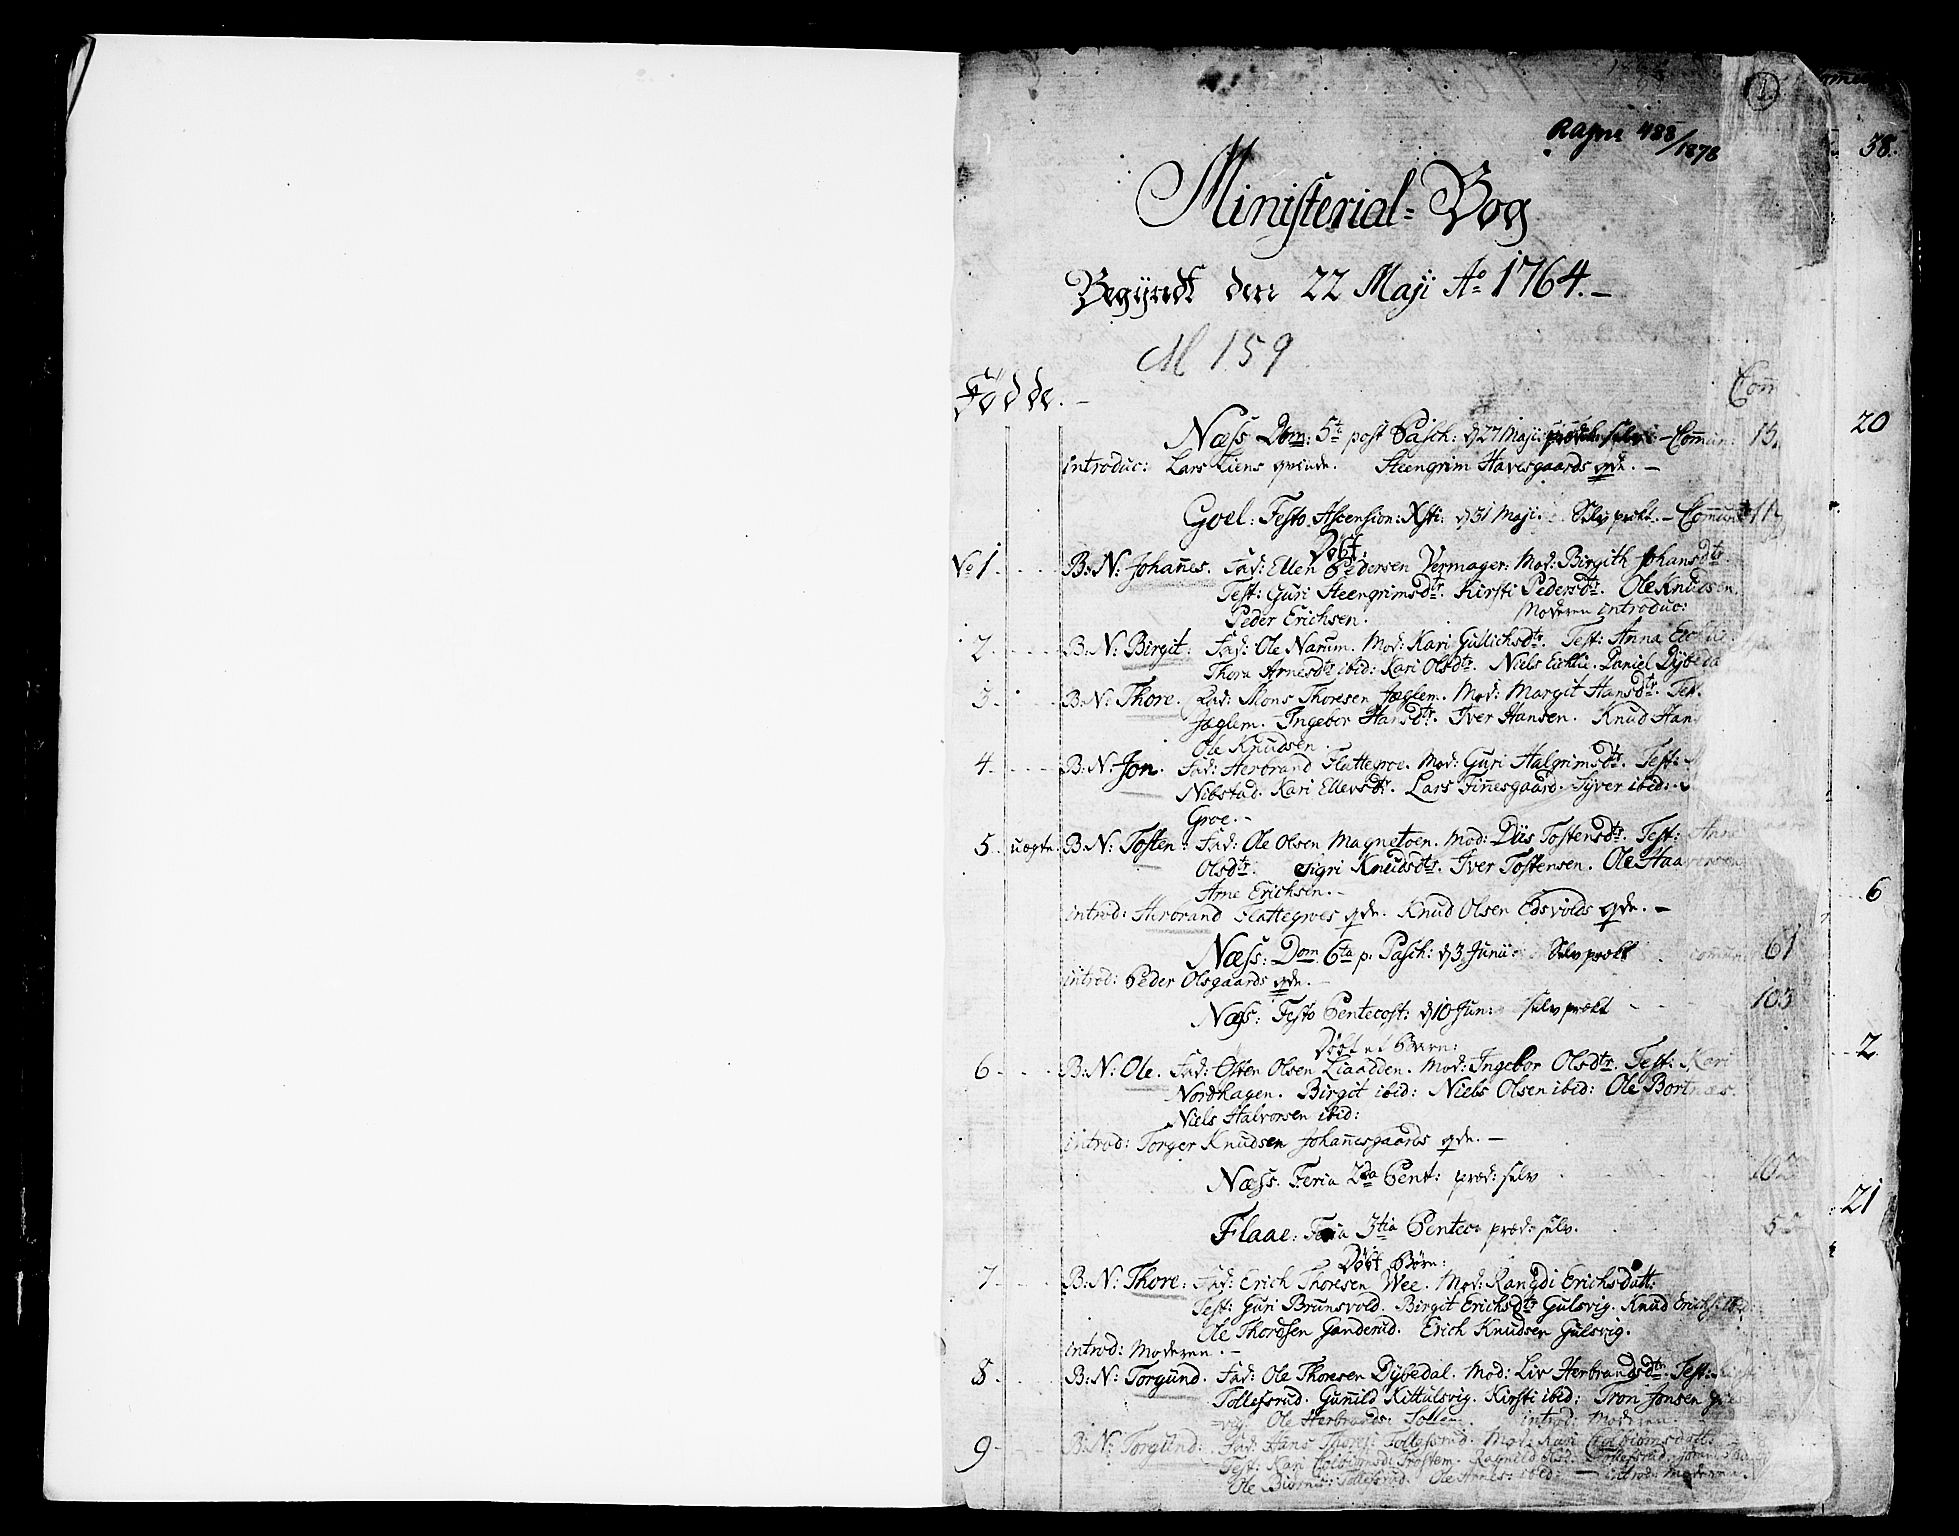 1
38.
Ragne 488/1878
Ministerial=Bog
Begyndt den 22 Maji Ao 1764.-
M 159
Födde.-
Com
Næss Dom: 5te post Pasch: d 27 Maji - Commun: 15
20
introduc: Lars Liens qvinde. Steengrim Havesgaards qde.-
Goel: Festo Ascension: Xsti: d 31 Maji. Selv prækt.- Commun 11
Døbt
No 1 B: N: Johañes. Fad: Ellen Pedersen Vermager: Mod: Birgith Johansdtr.
Test: Guri Steengrimsdtr. Kirsti Pedersdtr. Ole Knudsen.
Peder Erichsen. Moderen introduc:
2 B: N: Birgit: Fad: Ole Narum. Mod: Kari Gullichsdtr. Test: Anna
Thora Arnesdtr ibid: Kari Olsdtr. Niels Eichlie. Daniel
3 B: N: Thore. Fad: Mons Thoresen Jæglem. Mod: Margit Hansdtr. Test
Jæglem. Ingebor Hansdtr. Iver Hansen. Knud Han
Ole Knudsen.
4 B: N: Jon. Fad: Herbrand Flattegroe. Mod: Guri Halgrimsdtr. Test:
Nibstad. Kari Ellevsdtr. Lars Fiñesgaard. Syver ibid:
Groe.-
5 uægte B: N: Tosten: Fad: Ole Olsen Magnetoen. Mod: Diis Tostensdtr. Test: Anne
Olsdtr. Sigri Knudsdtr. Iver Tostensen. Ole
Arne Erichsen.-
6
introd: Herbrand Flattegroes qde. Knud Olsen Edsvolds qde.-
Næss: Dom 6ta p. Pasch: d 3 Junii Selv prækt commun: 61
introd: Peder Olsgaards qde.-
Næss: Festo Pentecost: d 10 Jun: selv prækt 103
Døbt et Barn:
2
6 B: N: Ole. Fad: Osten Olsen Liaadden. Mod: Ingebor Olsdtr. Test: Kari
Nordhagen. Birgit ibid: Niels Olsen ibid: Ole Bortnæs.
Niels Halvorsen ibid:
introd: Torger Knudsen Johañesgaards qde.-
Næss: Feria 2da Pent: præd: selv
21
Flaae: Feria 3tia Pentec: præd: selv.
Døbt Børn:
7 B: N: Thore: Fad: Erich Thoresen Wee. Mod: Rangdi Erichsdatt:
Test: Guri Brunsvold. Birgit Erichsdtr Gulsvig. Knud Erichs: ibid:
Ole Thordsen Ganderud. Erich Knudsen Gulsvig.
introd: Moderen.-
8 B: N: Torgund. Fad: Ole Thoresen Dybedal. Mod: Liv Herbrandsdtr. Test:
Tollefsrud. Guñild Kittulsvig. Kirsti ibid: Tron Jonsen
veg: Ole Herbrands: introd: Moderen.
9 B: N: Torgund: Fad: Hans Thores: Tollefsrud. Mod: Kari
Test: Kari Trostem. Ragnild Olsd: Tollefsrud.
Ole Biörns: Tollefsrud. Ole Arnes: ibid: - introd: Moderen.